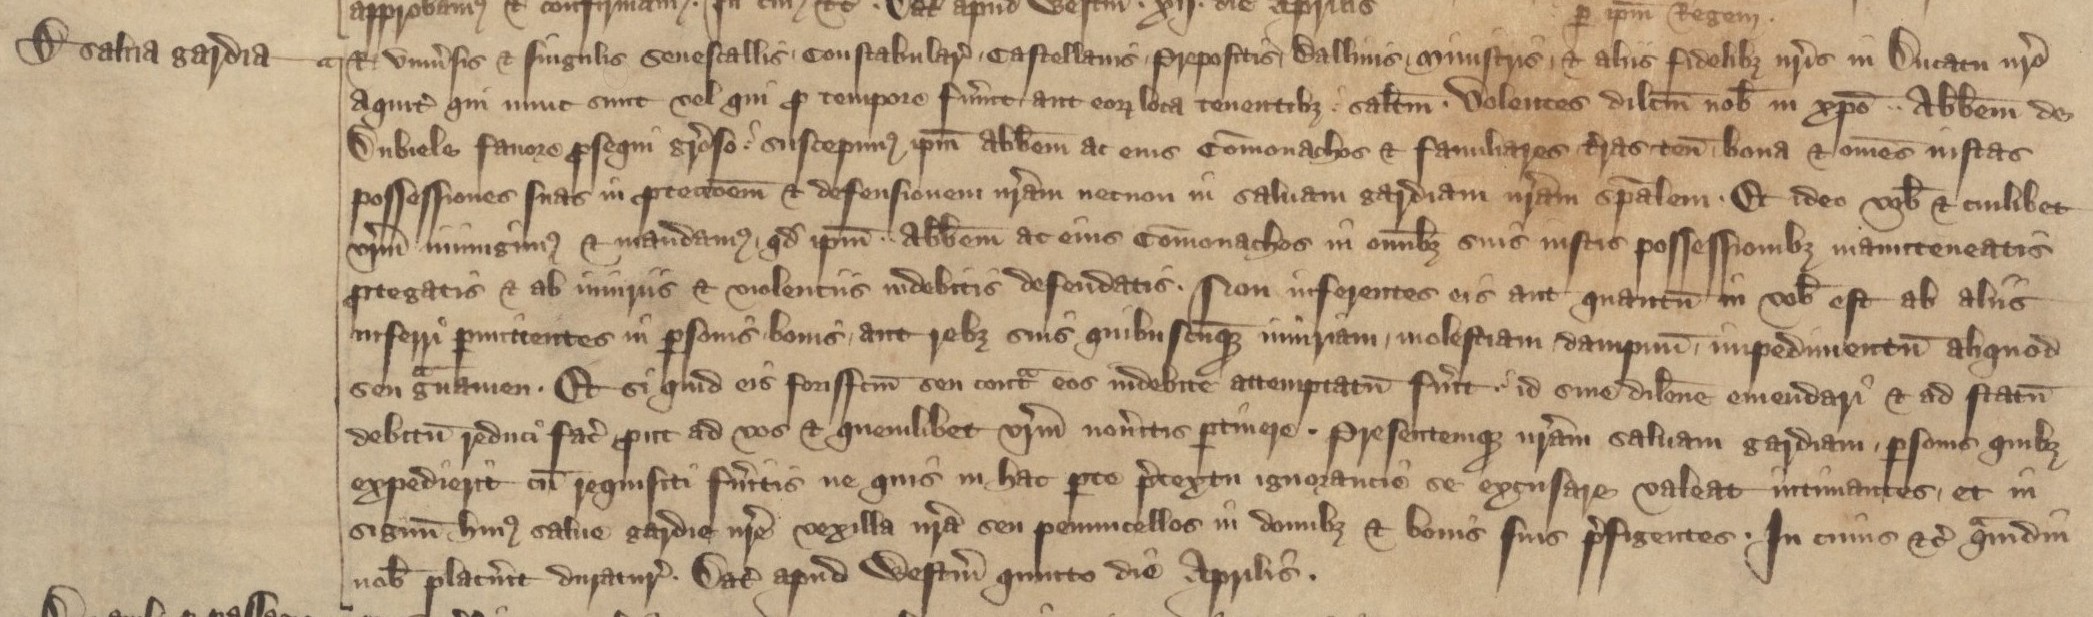 approbam⁹ et confirmam⁹. In cui⁹ etc̄. Dat̄ apud Westm̄. xij. die Aprilis
ꝑ ip̄m Regem.
D salua gardia
R. vniu̾sis et singulis Senescallis, Constabular̄, Castellanis, Prepositis, Balliuis, Ministris, et aliis fidelibꝫ nr̄is in Ducatu nr̄o
Aquit̄ qui nunc sunt vel qui ꝓ tempore fu̾int aut eoꝝ loca tenentibꝫ: salt̄m. Volentes dilc̄m nob̄ in xp̄o .. Abb̄em de
Dubiele fauore ꝓsequi gr̄oso: suscepim⁹ ip̄m Abb̄em ac eius Com̄onachos et familiares t̄ras ten̄ bona et om̄es iustas
possessiones suas in ꝓteccōem et defensionem nr̄am necnon in saluam gardiam nr̄am sp̄alem. Et ideo vob̄ et cuilibet
vr̄m iniungim⁹ et mandam⁹, qd̄ ip̄m .. Abb̄em ac eius Com̄onachos in om̄ibꝫ suis iustis possessionibꝫ manuteneatis
ꝓtegatis et ab iniuriis et violentiis indebitis defendatis. Non inferentes eis aut quantū in vob̄ est ab aliis
inferri ꝑmittentes in ꝑsonis, bonis, aut rebꝫ suis quibuscūqꝫ iniuriam, molestiam, dampnū, impedimentū aliquod
seu g̃uamen. Et si quid eis forisfc̄m seu cont̃ eos indebite attemptatū fu̾it: id sine dilōne emendari et ad statū
debitū reduci fac̄ ꝓut ad vos et quemlibet vr̄m nou̾itis ꝑtinere. Presentemqꝫ nr̄am saluam gardiam, ꝑsonis quibꝫ
expedierit cū requisiti fu̾itis ne quis in hac ꝑte p̄textu ignorancie se excusare valeat intimantes, et in
signū hui⁹ salue gardie nr̄e vexilla nr̄a seu penuncellos in domibꝫ et bonis suis p̄figentes. In cuius etc̄ q̃mdiu
nob̄ placu̾it duratur̄. Dat̄ apud Westm̄ quinto die Aprilis.